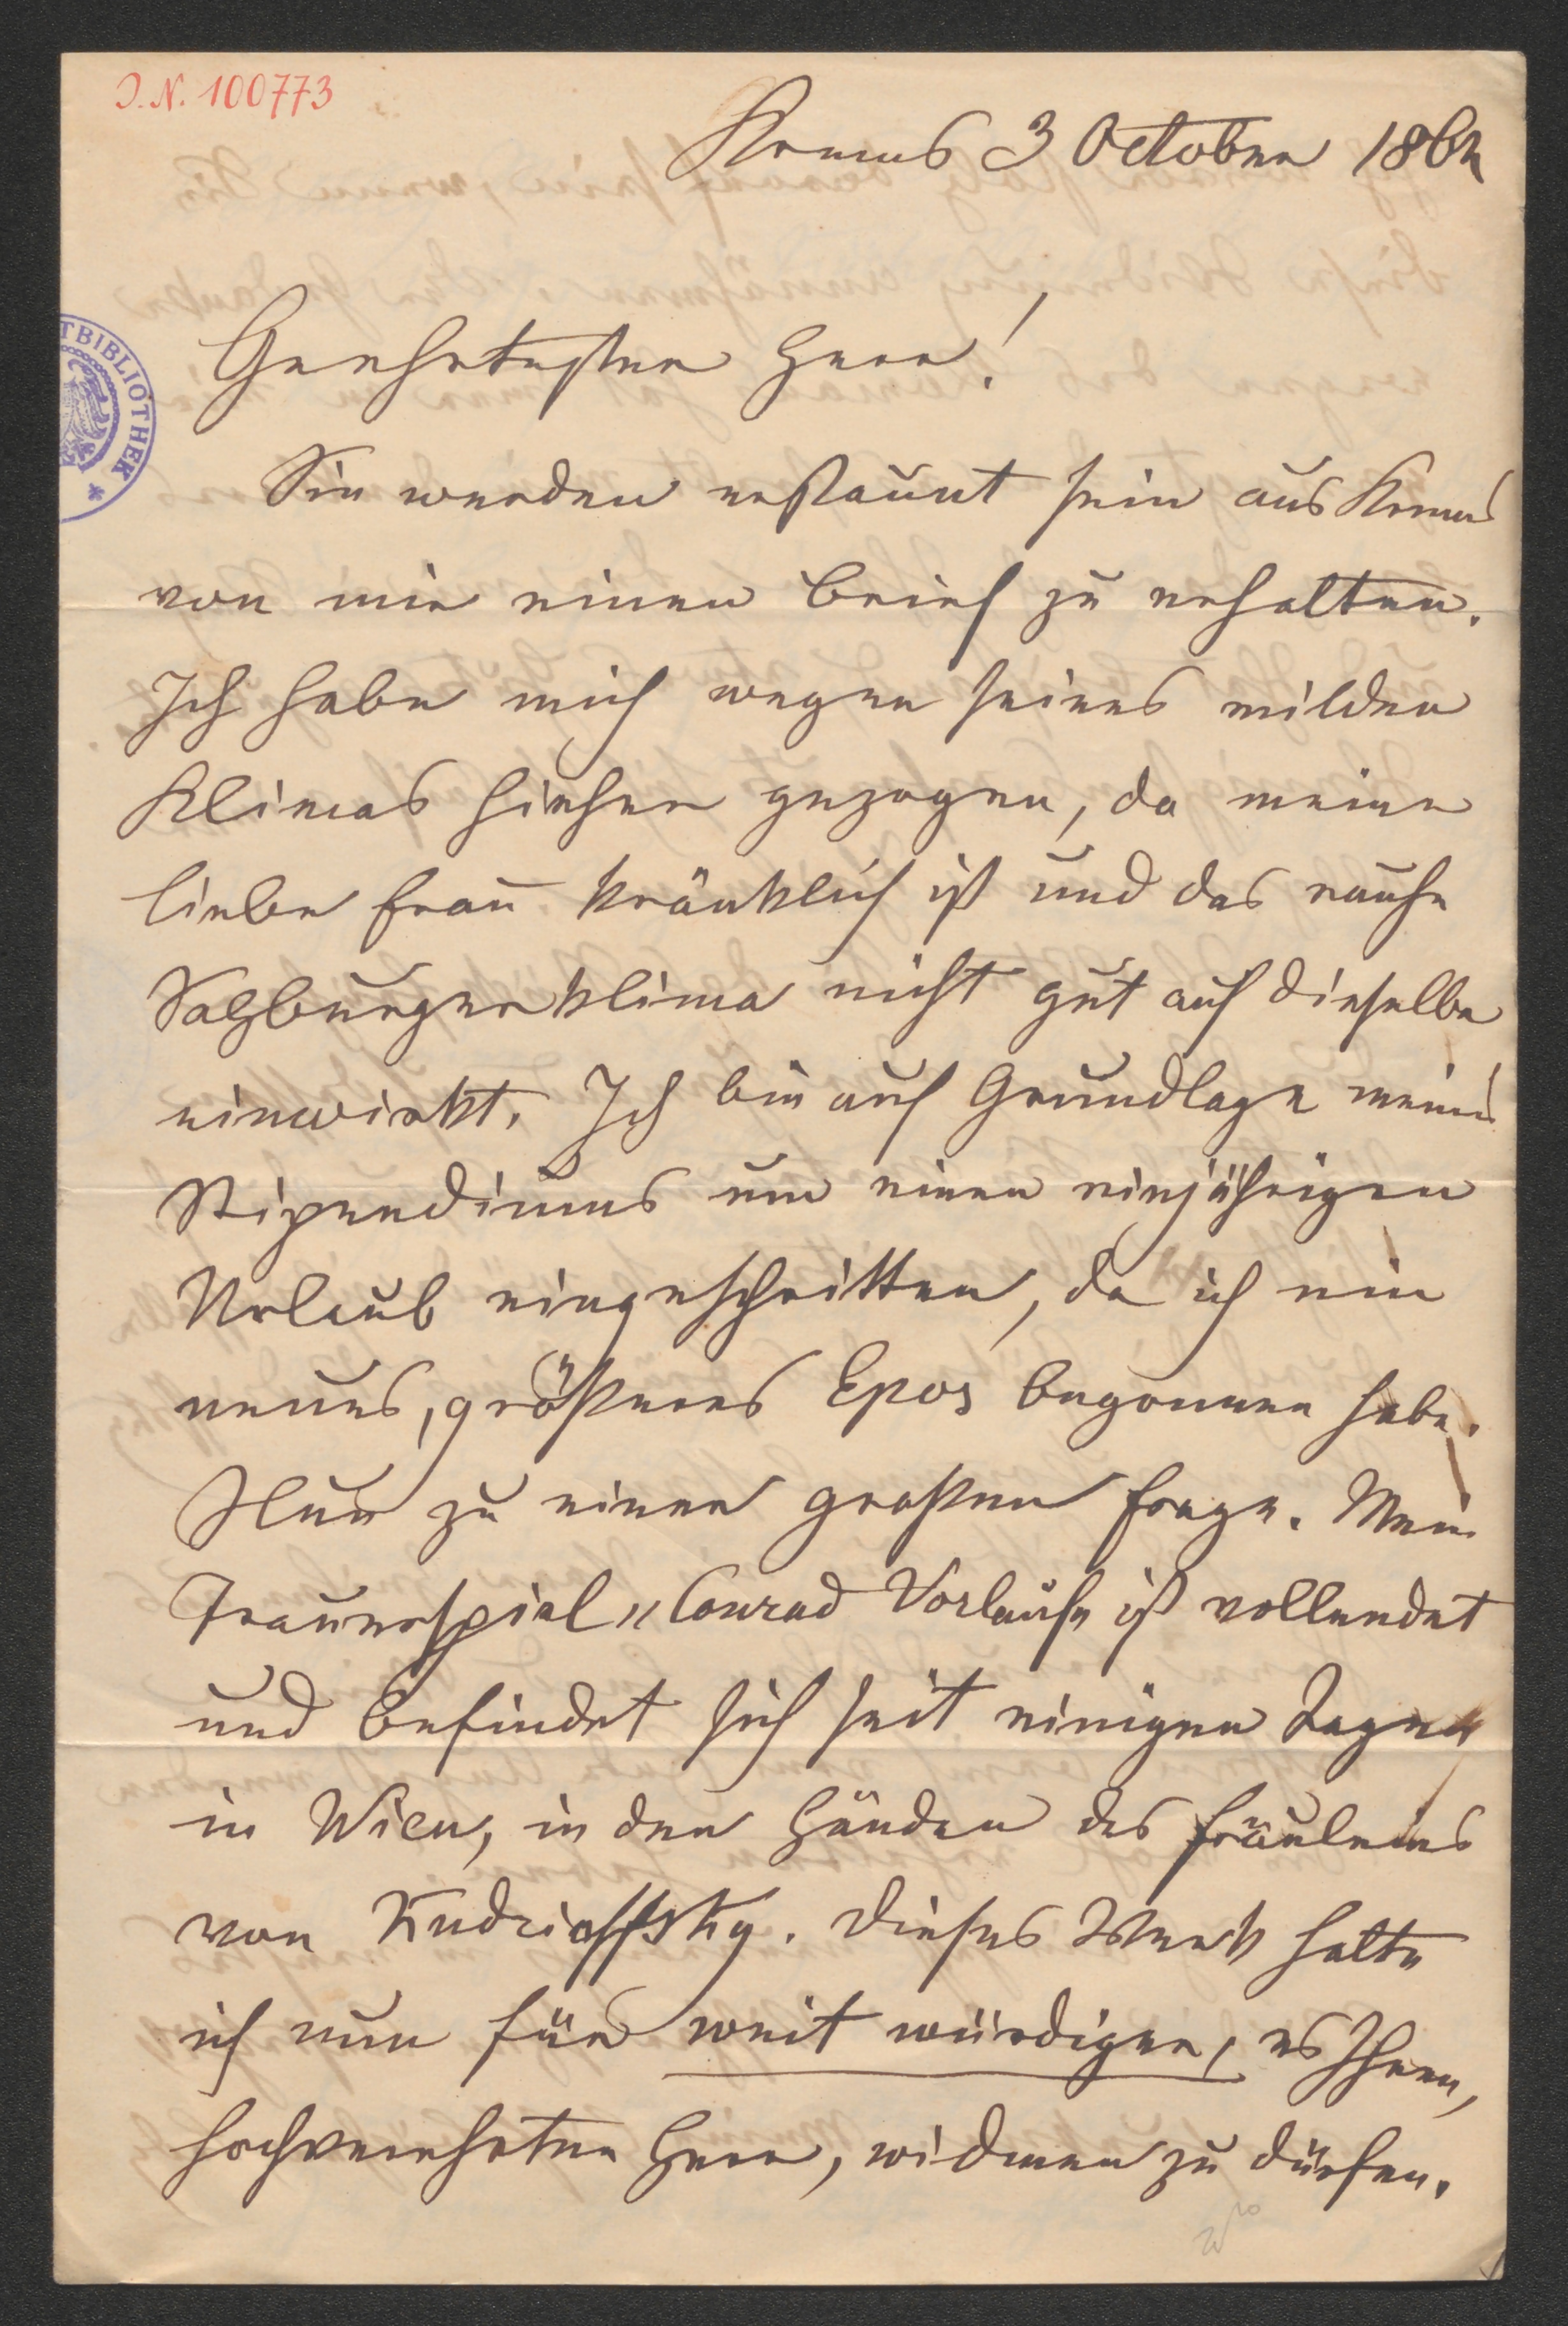 J. N. 100773
Krems 3 October 186
TBIBLIOTHEK *
Geehrtester Herr!
Sie werden erstaunt sein aus Krems
von mir einen Brief zu erhalten.
Ich habe mich wegen seines milden
Klimas hieher gezogen, da meine
liebe Frau kränklich ist und das rauhe
Salzburgerklima nicht gut auf dieselbe
einwirkt. Ich bin auf Grundlage meines
Stipendiums um einen einjährigen
Urlaub eingeschritten, da ich ein
neues, größeres Epos begonnen habe.
Nun zu einer großen Frage. Mein
Trauerspiel „Conrad Vorlauf" ist vollendet
und befindet sich seit einigen Tagen
in Wien, in den Händen des Fräuleins
von Kudriaffsky. Dieses Werk halte
ich nun für weit würdiger, es Ihnen,
hochverehrter Herr, widmen zu dürfen.